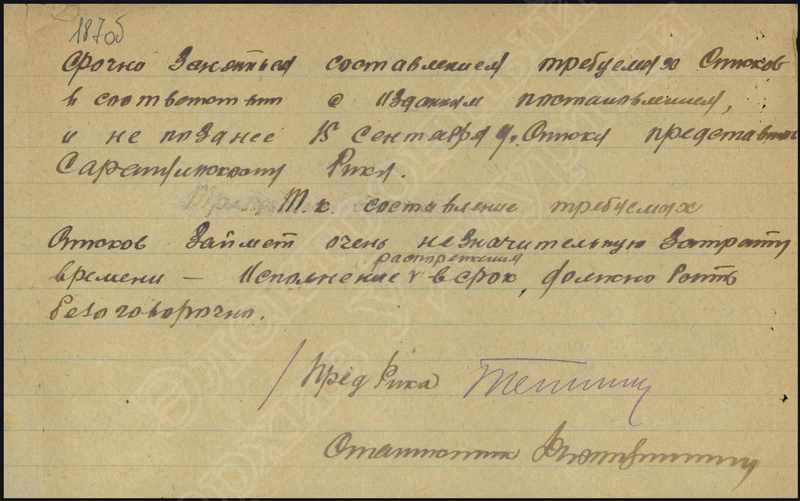 187об
Срочно заняться составлением требуемых списков
в соответствии с изданным постановлением,
и не позднее 15 сентября списки представить
Рика.
Т.к. составление требуемых
списков займет очень незначительную затрату
времени — Исполнение распоряжения в срок должно быть
безоговорочно.
Пред Рика
Статистик